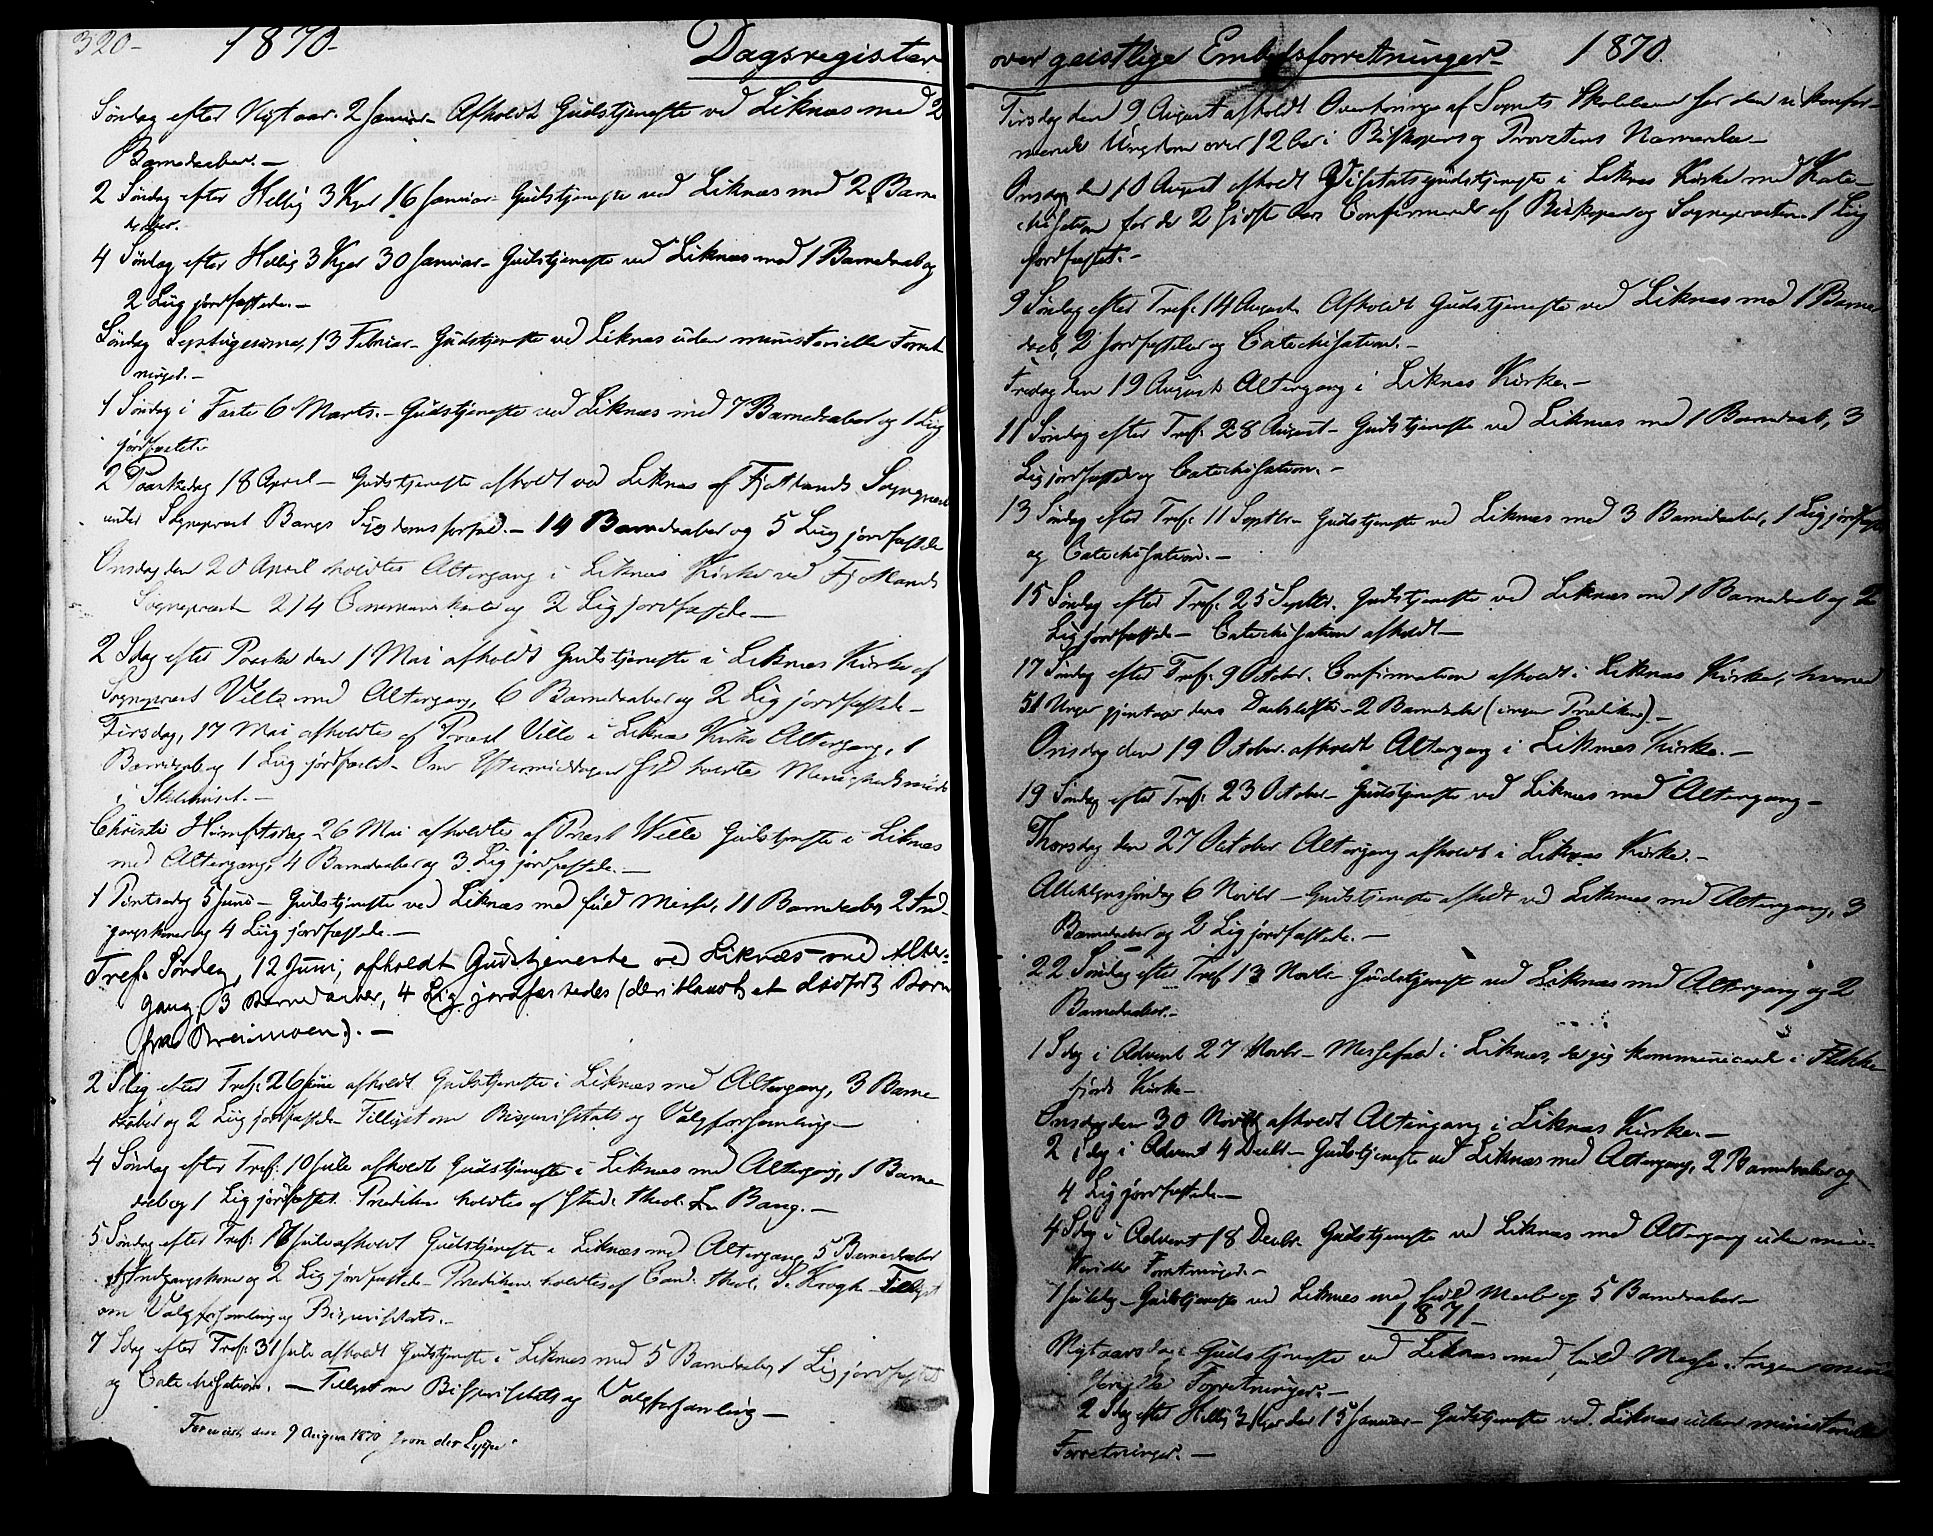 320- 1870- Dagsregister
Søndag efter Nytaar 2 Januar Afholdt Gudstjeneste ved Liknæs med 2
Barnedaaber.-
2 Søndag efter Hellig 3 Kger 16 Januar- Gudstjeneste ved Liknæs med 2 Barne
daaber.
4 Søndag efter Hellig 3 Kger 30 Januar- Gudstjeneste ved Liknæs med 1 Barnedaab og
2 Liig jordfæstede.-
Søndag Septuagesima, 13 Februar- Gudstjeneste ved Liknæs uden ministerielle Forret
ninger.-
1 Søndag i Faste 6 Marts.- Gudstjeneste ved Liknæs med 7 Barnedaaber og 1 Liig
jordfæstet.
2 Paaskedag 18 April- Gudstjeneste afholdt ved Liknæs af Fjotlands Sognepræst
under Sognepræst Bangs Sygdomsforfald.- 14 Barnedaaber og 5 Liig jordfæstede
Onsdag den 20 April holdtes Altergang i Liknæs Kirke ved Fjotlands
Sognepræst 214 Communikanter og 2 Lig jordfæstede-
2 Sdag efter Paaske den 1 Mai afholdt Gudstjeneste i Liknæs Kirke af
Sognepræst Wille med Altergang, 6 Barnedaaber og 2 Lig jordfæstede-
Tirsdag, 17 Mai afholdtes af Præst Wille i Liknæs Kirke Altergang, 1
Barnedaab og 1 Liig jordfæstet- Om Eftermiddagen holdtes Menighedsmøde
i Skolehuset.-
Christi Himfartsdag 26 Mai afholdtes af Præst Wille Gudstjeneste i Liknæs
med Altergang, 4 Barnedaaber og 3 Lig jordfæstede.-
1 Pintsedag 5 Juni- Gudstjeneste ved Liknæs med fuld Messe, 11 Barnedaaber, 2 Ind-
gangskoner og 4 Liig jordfæstede.-
Tref. Søndag, 12 Juni, afholdt Gudstjeneste ved Liknæs med Alter-
gang, 3 Barnedaaber, 4 Lig jordfæstedes (deriblandt et dødfødt Barn
fra Breimoen).-
2 Sdag efter Tref. 26 Juni afholdt Gudstjeneste i Liknæs med Altergang, 3 Barne
daaber og 2 Liig jordfæstede Tillyst om Bispevisitats og Valgforsamling-
4 Søndag efter Tref: 10 Juli afholdt Gudstjeneste i Liknæs med Altergang, 1 Barne
daab og 1 Lig jordfæstet. Prædiken holdtes af Stud. theol. Bang.-
5 Søndag efter Tref: Juli afholdt Gudstjeneste i Liknæs med Altergang, 5 Barnedaaber
Indgangskoner og 2 Lig jordfæstede- Prædiken holdtes af Cand. theol. S. Krogh- Tillyst
om Valgforsamling og Bispevisitats.-
7 Sdag efter Tref: 31 Juli afholdt Gudstjeneste i Liknæs med 5 Barnedaaber, 1 Lig jordfæstet
og Catechisation.- Tillyst om Bispevisitats og Valgforsamling-
Forevist den 9 August 1870 J von der Lippe
over geistlige Embedsforretninger- 1870.
Tirsdag den 9 August afholdt Overhøring af Sognets Skolebørn for den ukonfir-
merede Ungdom over 12 Aar i Biskopens og Provstens Nærværelse-
Onsdag den 10 August afholdt Visitatsgudstjeneste i Liknæs Kirke med Kate-
chisation for de 2 sidste Aars Confirmerede af Biskopen og Sognepræsten- 1 Liig
jordfæstet.-
9 Søndag efter Tref: 14 August Afholdt Gudstjeneste ved Liknæs med 1 Barne
daab, 2 Jordfæstelser og Catechisation.-
Fredag den 19 August Altergang i Liknæs Kirke.-
11 Søndag efter Tref: 28 August- Gudstjeneste ved Liknæs med 1 Barnedaab, 3
Lig jordfæstet og Catechisation.-
13 Søndag efter Tref: 11 Septbr- Gudstjeneste ved Liknæs med 3 Barnedaaber, 1 Lig jordfæstet
og Catechisation.-
15 Søndag efter Tref: 25 Septbr. Gudstjeneste ved Liknæs med 1 Barnedaab og 2
Lig jordfæstede- Catechisation afholdt-
17 Søndag efter Tref: 9 October. Confirmation afholdt i Liknæs Kirke, hvorved
51 Unge gjentoge deres Daabsløfte- 2 Barnedaaber (ingen Prædiken).-
Onsdag den 19 October afholdt Altergang i Liknæs Kirke.-
19 Søndag efter Tref: 23 October- Gudstjeneste ved Liknæs med Altergang-
Thorsdag den 27 October Altergang afholdt i Liknæs Kirke.-
Allehelgenssøndag 6 Novbr- Gudstjeneste afholdt ved Liknæs med Altergang, 3
Barnedaaber og 2 Lig jordfæstede.-
22 Søndag efter Tref 13 Novbr- Gudstjeneste ved Liknæs med Altergang og 2
Barnedaaber.-
1 Sdag i Advent 27 Novbr- Messefald i Liknæs, da jeg kommunicerede i Flekke
fjords Kirke-
Onsdag den 30 Novbr afholdt Altergang i Liknæs Kirke.-
2 Sdag i Advent 4 Decbr- Gudstjeneste ved Liknæs med Altergang, 2 Barnedaaber og
4 Lig jordfæstede-
4 Sdag i Advent 18 Decbr. Gudstjeneste ved Liknæs med Altergang uden mini-
sterielle Forretninger.-
1 Juledag- Gudstjeneste ved Liknæs med fuld Messe og 5 Barnedaaber-
1871-
Nytaarsdag- Gudstjeneste ved Liknæs med fuld Messe. Ingen mini
sterielle Forretninger.-
2 Sdag efter Hellig 3 Kger den 15 Januar- Gudstjeneste ved Liknæs uden ministerielle
Forretninger.-